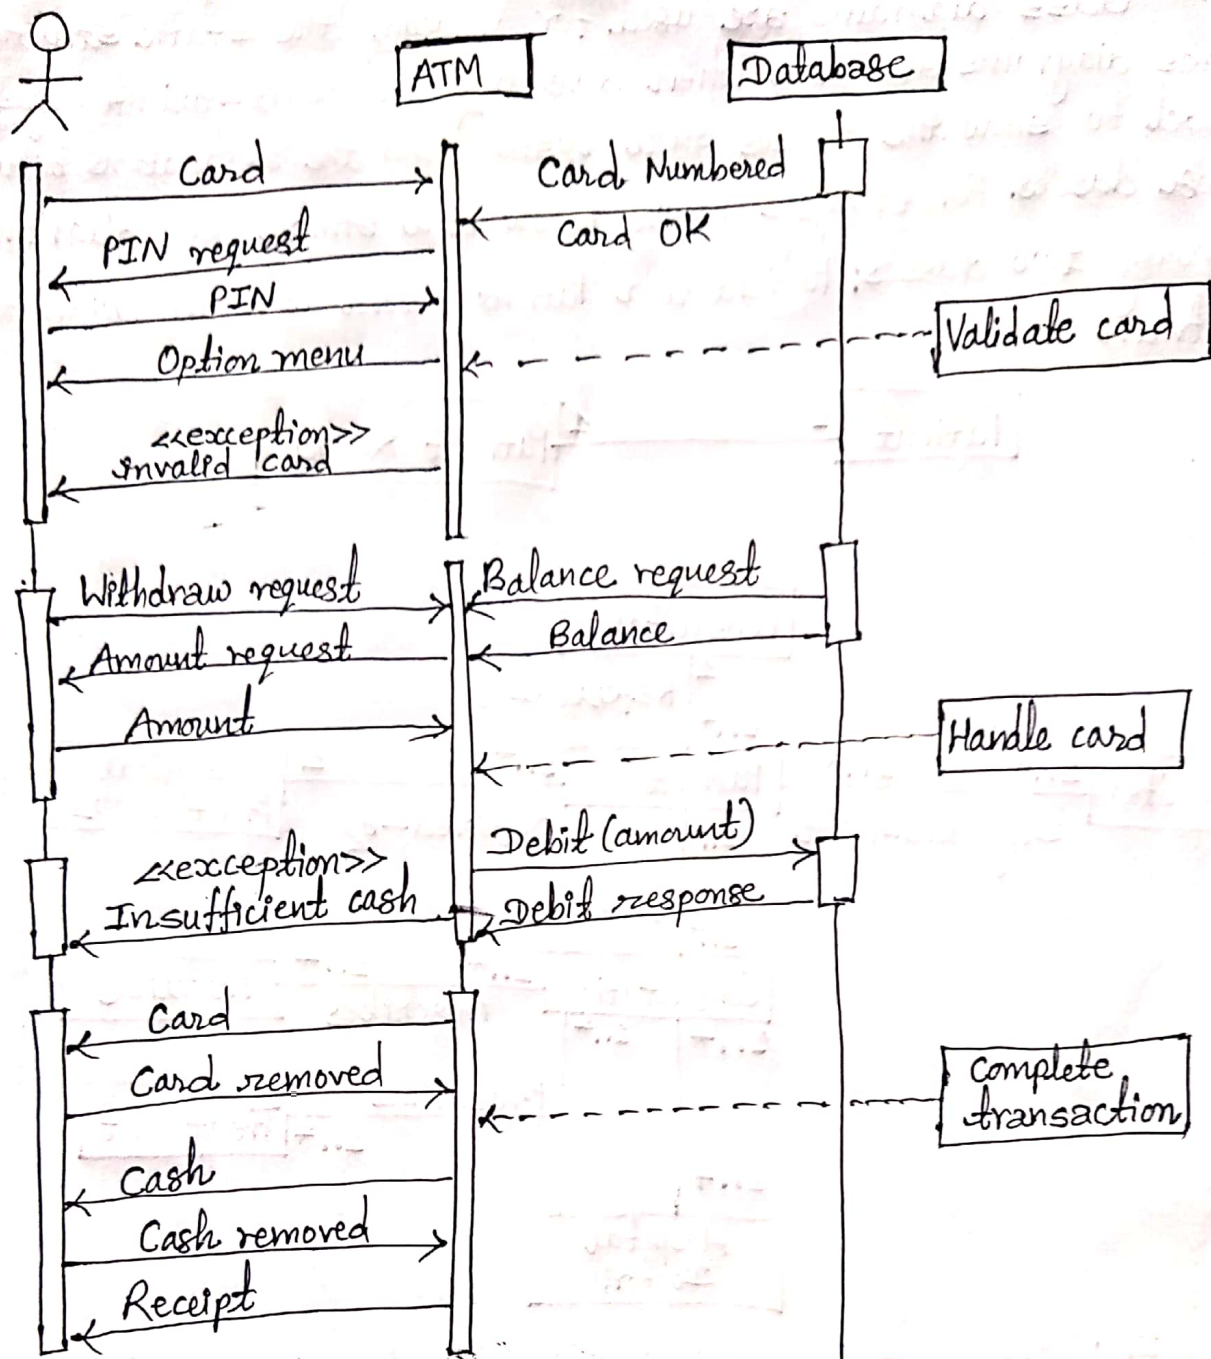 ATM
Database
Card
Card Numbered
Card OK
PIN request
PIN
Validate card
Option menu
<<exception>>
invalid card
Withdraw request
Balance request
Balance
Amount request
Amount
Handle card
Debit (amount)
<<exception>>
Insufficient cash
Debit response
Card
Card removed
Complete
transaction
Cash
Cash removed
Receipt